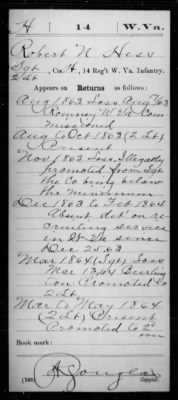 H | 14 | W. Va.
Robert N Hess
Sgt 2 Lt, Co. H, 14 Reg't W. Va. Infantry.
Appears on Returns as follows:
Aug 1863 Loss Aug 1/63
Romney W Va Com
missioned
Aug to Oct 1863 (2 Lt)
Present
Nov 1863 Loss, Illegally
promoted from Sgt
the Co being below
the Minimum
Dec 1863 to Feb 1864
Absent det' on re
cruiting service
in W Va since
Dec 25.63.
Mar 1864 (Sgt) Loss
Mar 1864 Burling
ton Promoted to
2 Lt
Mar to May 1864
(2 Lt) Present
Promoted to 2nd
Book mark:
(546)
Copyist.